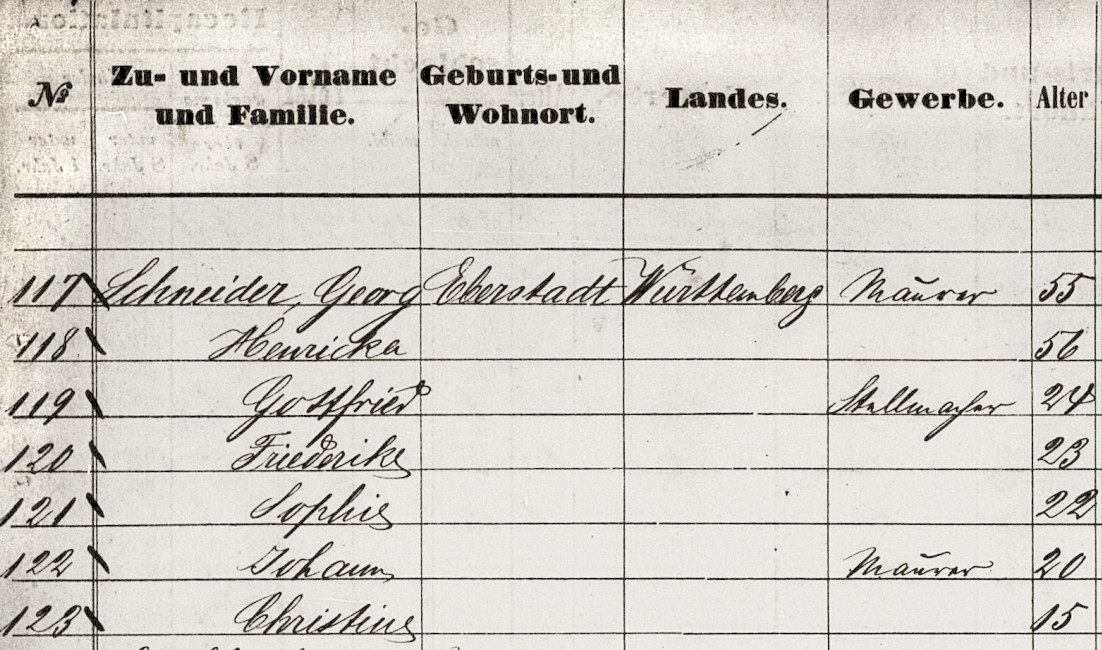 № Zu- und Vorname und Familie. Geburts- und Wohnort. Landes. Gewerbe. Alter
117 Schneider, Georg Eberstadt Württemberg Maurer 55
118 Henricka 56
119 Gottfried Stellmacher 24
120 Friederike 23
121 Sophie 22
122 Johann Maurer 20
123 Christine 15